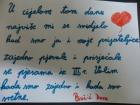 U cijelome tvom danu
najviše mi se svidjelo
kad smo ja i moje prijateljice
zajedno pjevale i prisjećale
se pjesama iz III.c. Volim
kada smo zajedno i kada smo
sretne.